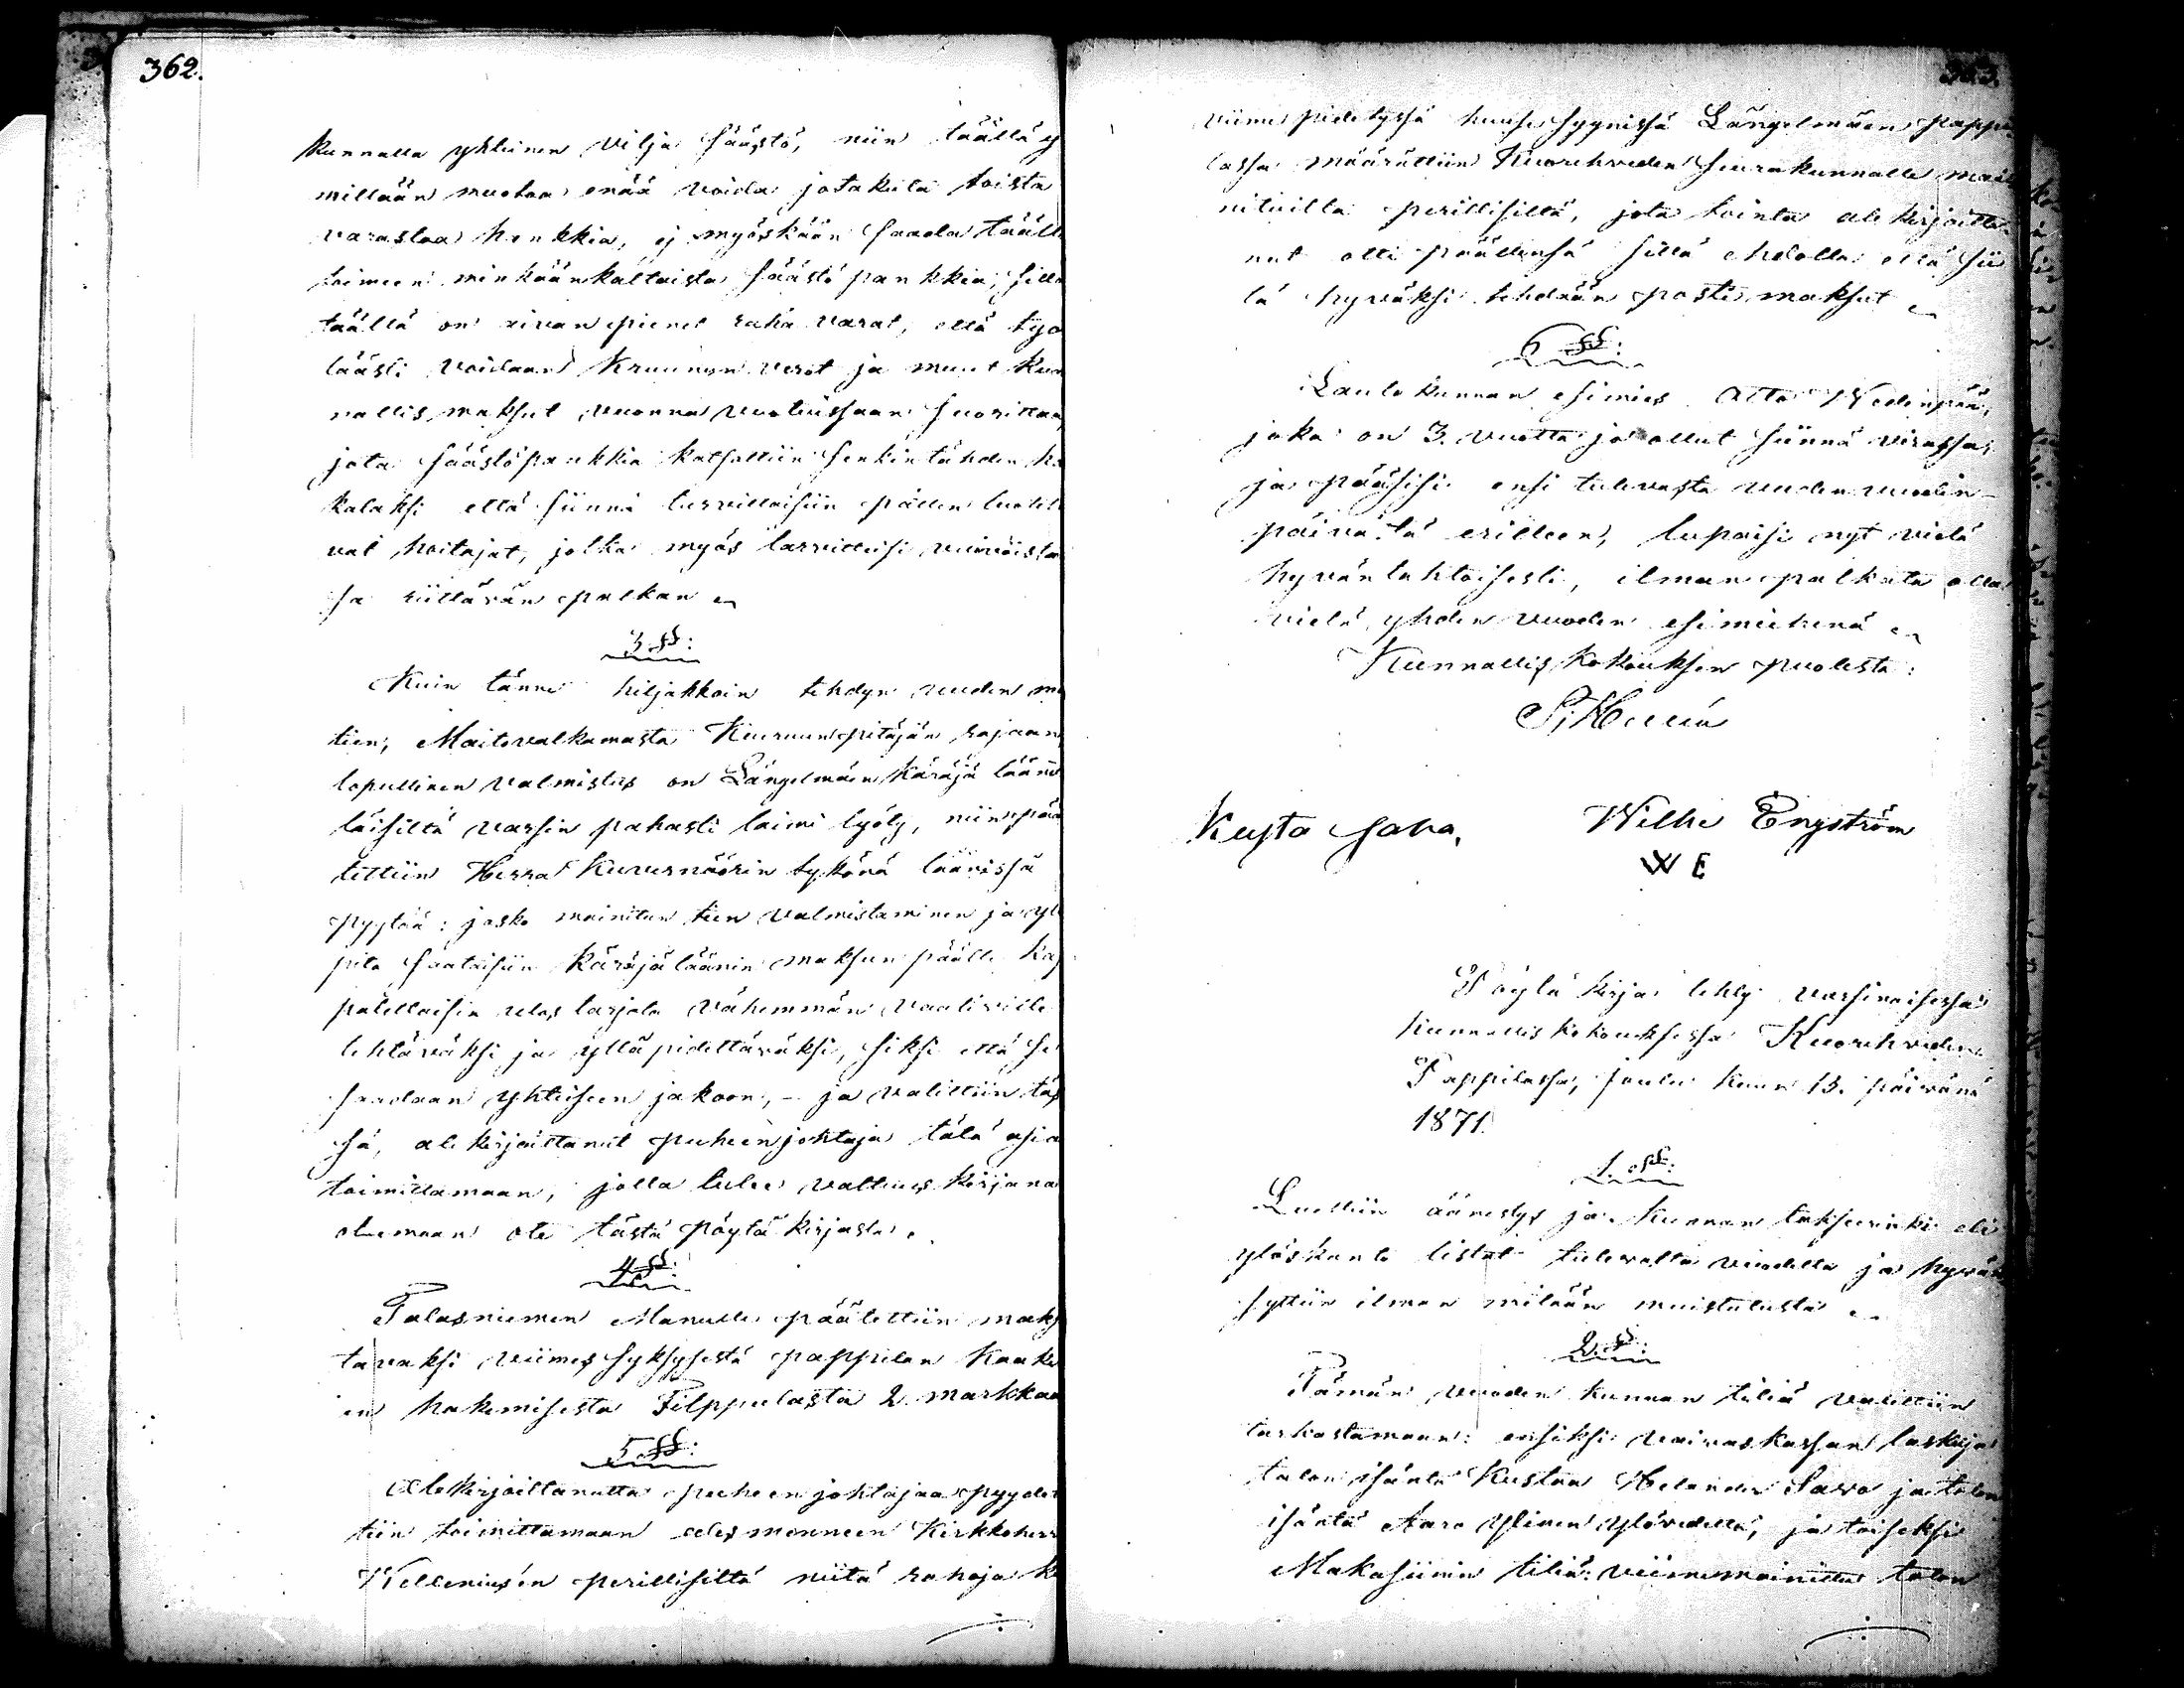 362.
kunnalla yhteinen vilja säästö, niin täällä ej
millään muotoa enää voida jotakuta toista
varastoa hankkia, ej myöskään saada täällä
toimeen minkäänkaltaista säästöpankkia; sillä
täällä on aivan pienet raha varat, että työ
läästi voidaan Kruunun verot ja muut kun
nallis maksut vuonna vuotuissaan suorittaa,
jota säästöpankkia katsottiin senkintähden
kalaksi että siinnä tarvittaisiin päällen luotet
vat hoitajat, jotka myös tarvitteisi
sa riittävän palkan
3 §§:
Kuin tänne hiljakkoin tehdyn uuden m
tien, Maitovalkamasta Kuruun pitäjän rajaan,
lopullinen valmistus on Längelmäen Käräjä lääni
läisiltä varsin pahasti laimi lyöty, niin pää
tettiin Herra Kuvernöörin tykönä läänissä
pyytää: josko mainitun tien valmistaminen ja yl
pito saataisiin Käräjäläänin maksun päälle
vähemmän vaativille
tehtäväksi ja ylläpidettäväksi, siksi että se
saadaan yhteiseen jakoon, – ja valittiin täs
sä, alekirjoittanut puheenjohtaja tätä asia
toimittamaan, jolla tulee valtuus kirjana
olemaan ote tästä pöytäkirjasta.
4 §§:
Talasniemen Manulle päätettiin maks
tavaksi viimes syksysestä pappilan kaake
in hakemisesta Filppulasta 2 markkaa
5 §§:
Alekirjoittanutta puheenjohtajaa pyydet
tiin toimittamaan edesmenneen Kirkkoherr
Welleniusen perillisiltä niitä rahoja k
363.
viime pidetyssä huuse syynissä Längelmäen pappi
lassa määrättiin Kuorehveden seurakunnalle mai
nituilta perillisiltä, jota tointa alekirjoitta
nut otti päällensä sillä ehdolla että sii
tä hyväksi tehdään posti maksut
6 §§:
Lautakunnan esimies Otto Wedenpää,
joka on 3. vuotta jo ollut siinnä virassa,
ja pääsisi ensi tulevasta uuden vuoden
päivästä erilleen, lupaisi nyt vielä
hyväntahtoisesti, ilman palkata olla
vielä yhden vuoden esimiehenä
Kunnallis Kokouksen puolesta:
Kusta Sava, Wilhe Engström
W E
Pöytä kirja tehty varsinaisessa
Kunnalliskokouksessa Kuorehveden
Pappilassa, Joulu Kuun 13. päivänä
1871.
1. §§:
Luettiin äänestys ja Kunnan takseerinki eli
ylöskanto listat tulevalta vuodelta ja hyväk
syttiin ilman mitään muistutusta
2. §§:
Tämän vuoden kunnan tiliä valittiin
tarkastamaan: ensiksi vaivaskassan laskuja
talon isäntä Kustaa Helander Savo ja talon
isäntä Aaro Ylinen Ylövedeltä, ja toiseksi
Makasiinin tiliä: viimemainittu talon